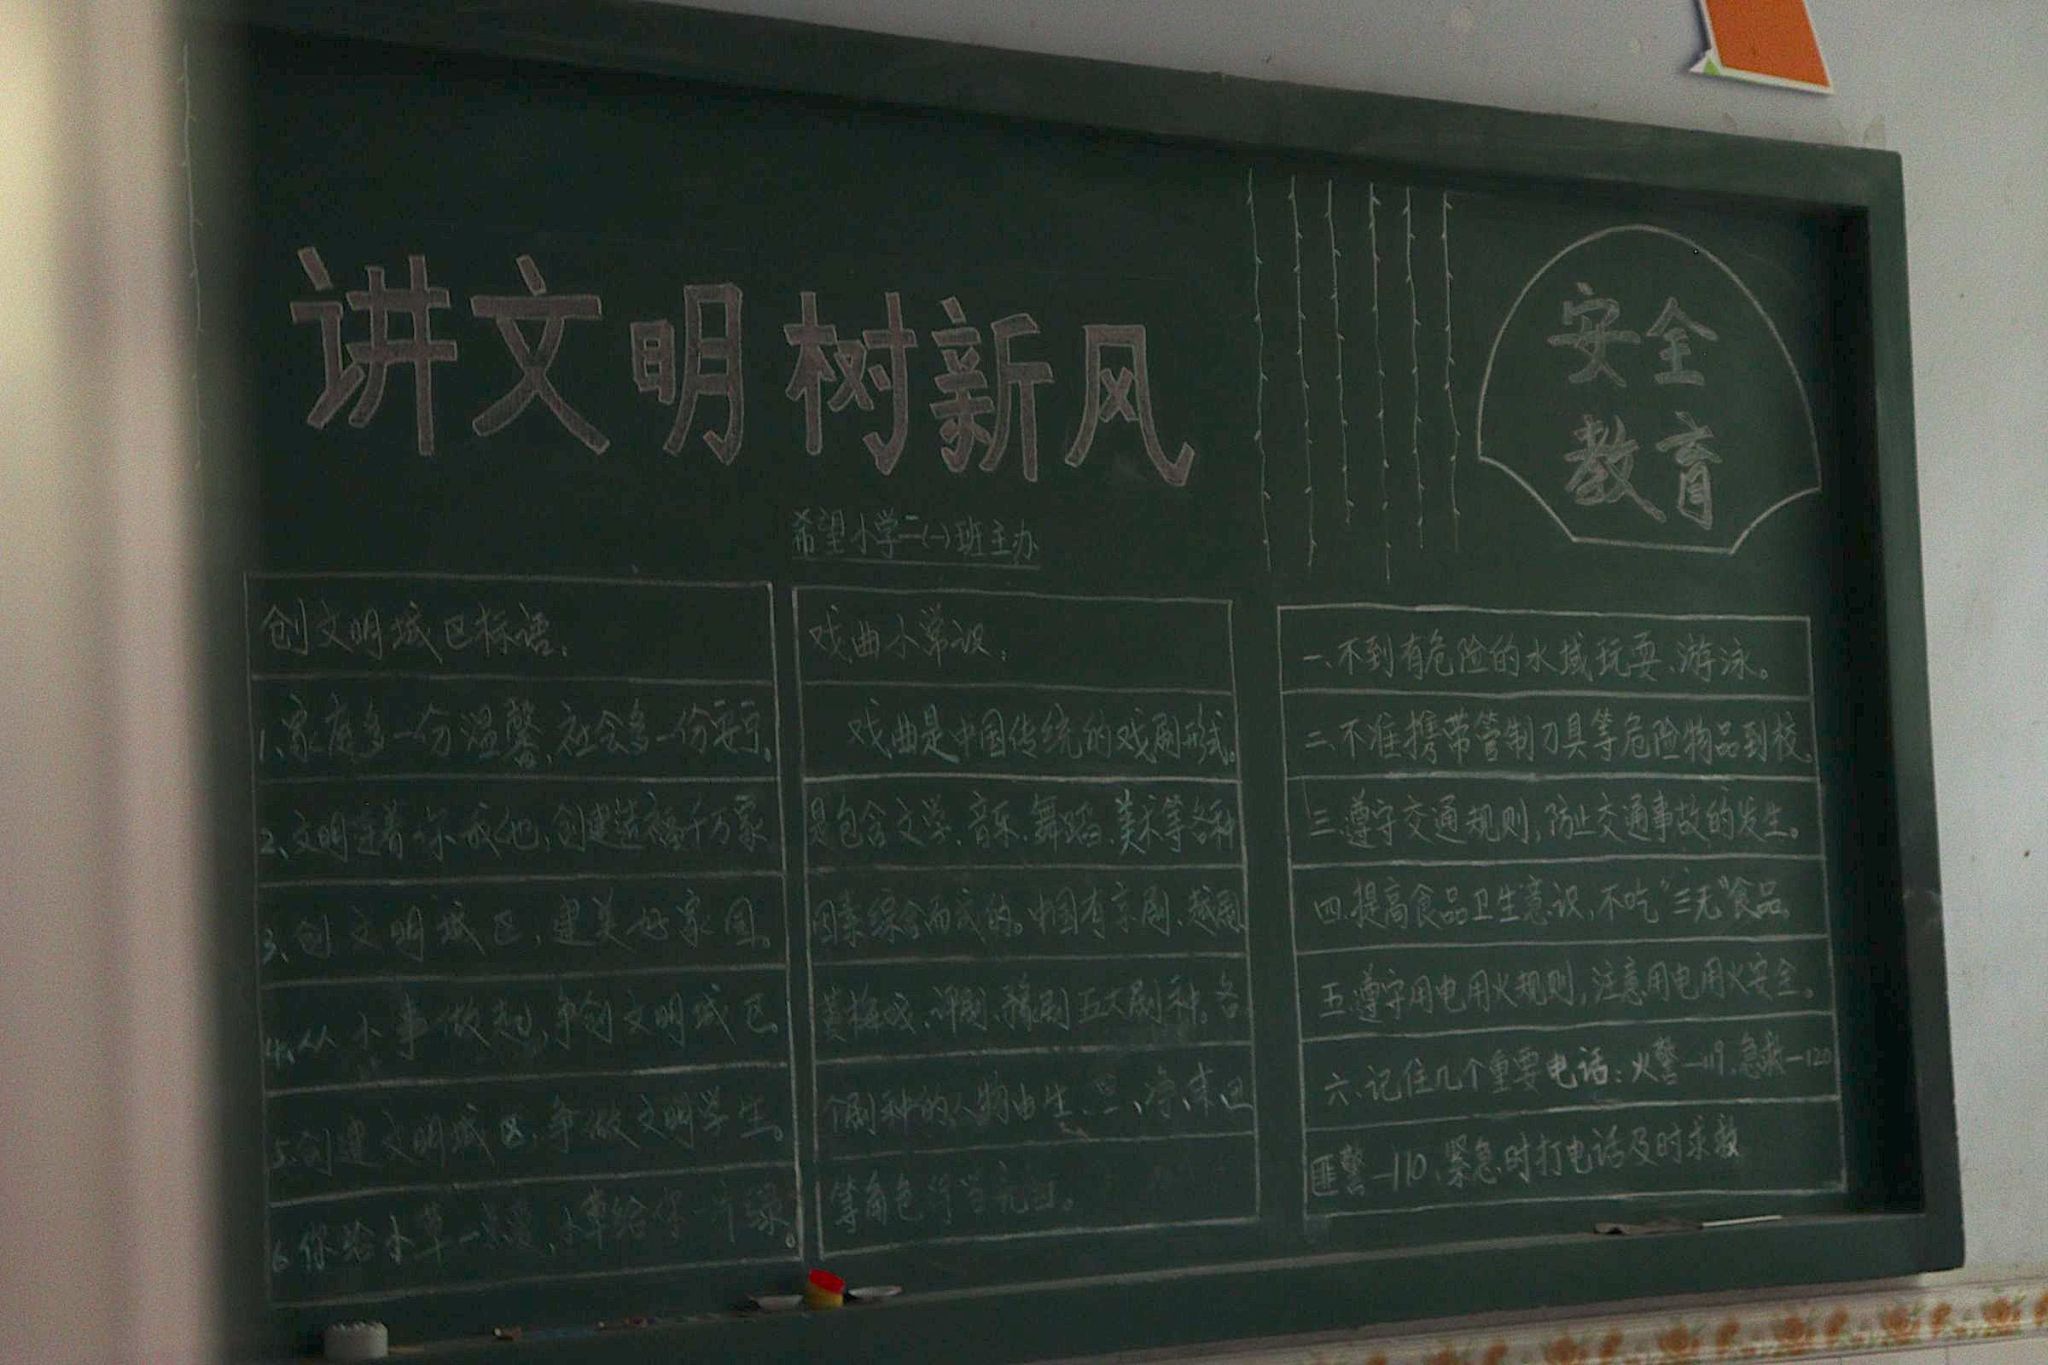 讲文明树新风
希望小学二(一)班主办
安全
教育
创文明城区标语:
1、家庭多一份温馨,社会多一份安宁。
2、文明连着你我他,创建造福千万家
3、创文明城区,建美好家园。
4、从小事做起,争创文明城区
5、创建文明城区,争做文明学生。
6、你给小草一点爱,小草给你一片绿。
戏曲小常识:
戏曲是中国传统的戏剧形式。
是包含文学、音乐、舞蹈、美术等各种
因素综合而成的。中国有京剧、越剧、
黄梅戏、评剧、豫剧五大剧种。各
个剧种的人物由生、旦、净、末、丑
等角色行当充任。
一、不到有危险的水域玩耍、游泳。
二、不准携带管制刀具等危险物品到校。
三、遵守交通规则,防止交通事故的发生。
四、提高食品卫生意识,不吃“三无”食品。
五、遵守用电用火规则,注意用电用火安全。
六、记住几个重要电话:火警—119、急救—120
匪警—110、紧急时打电话及时求救